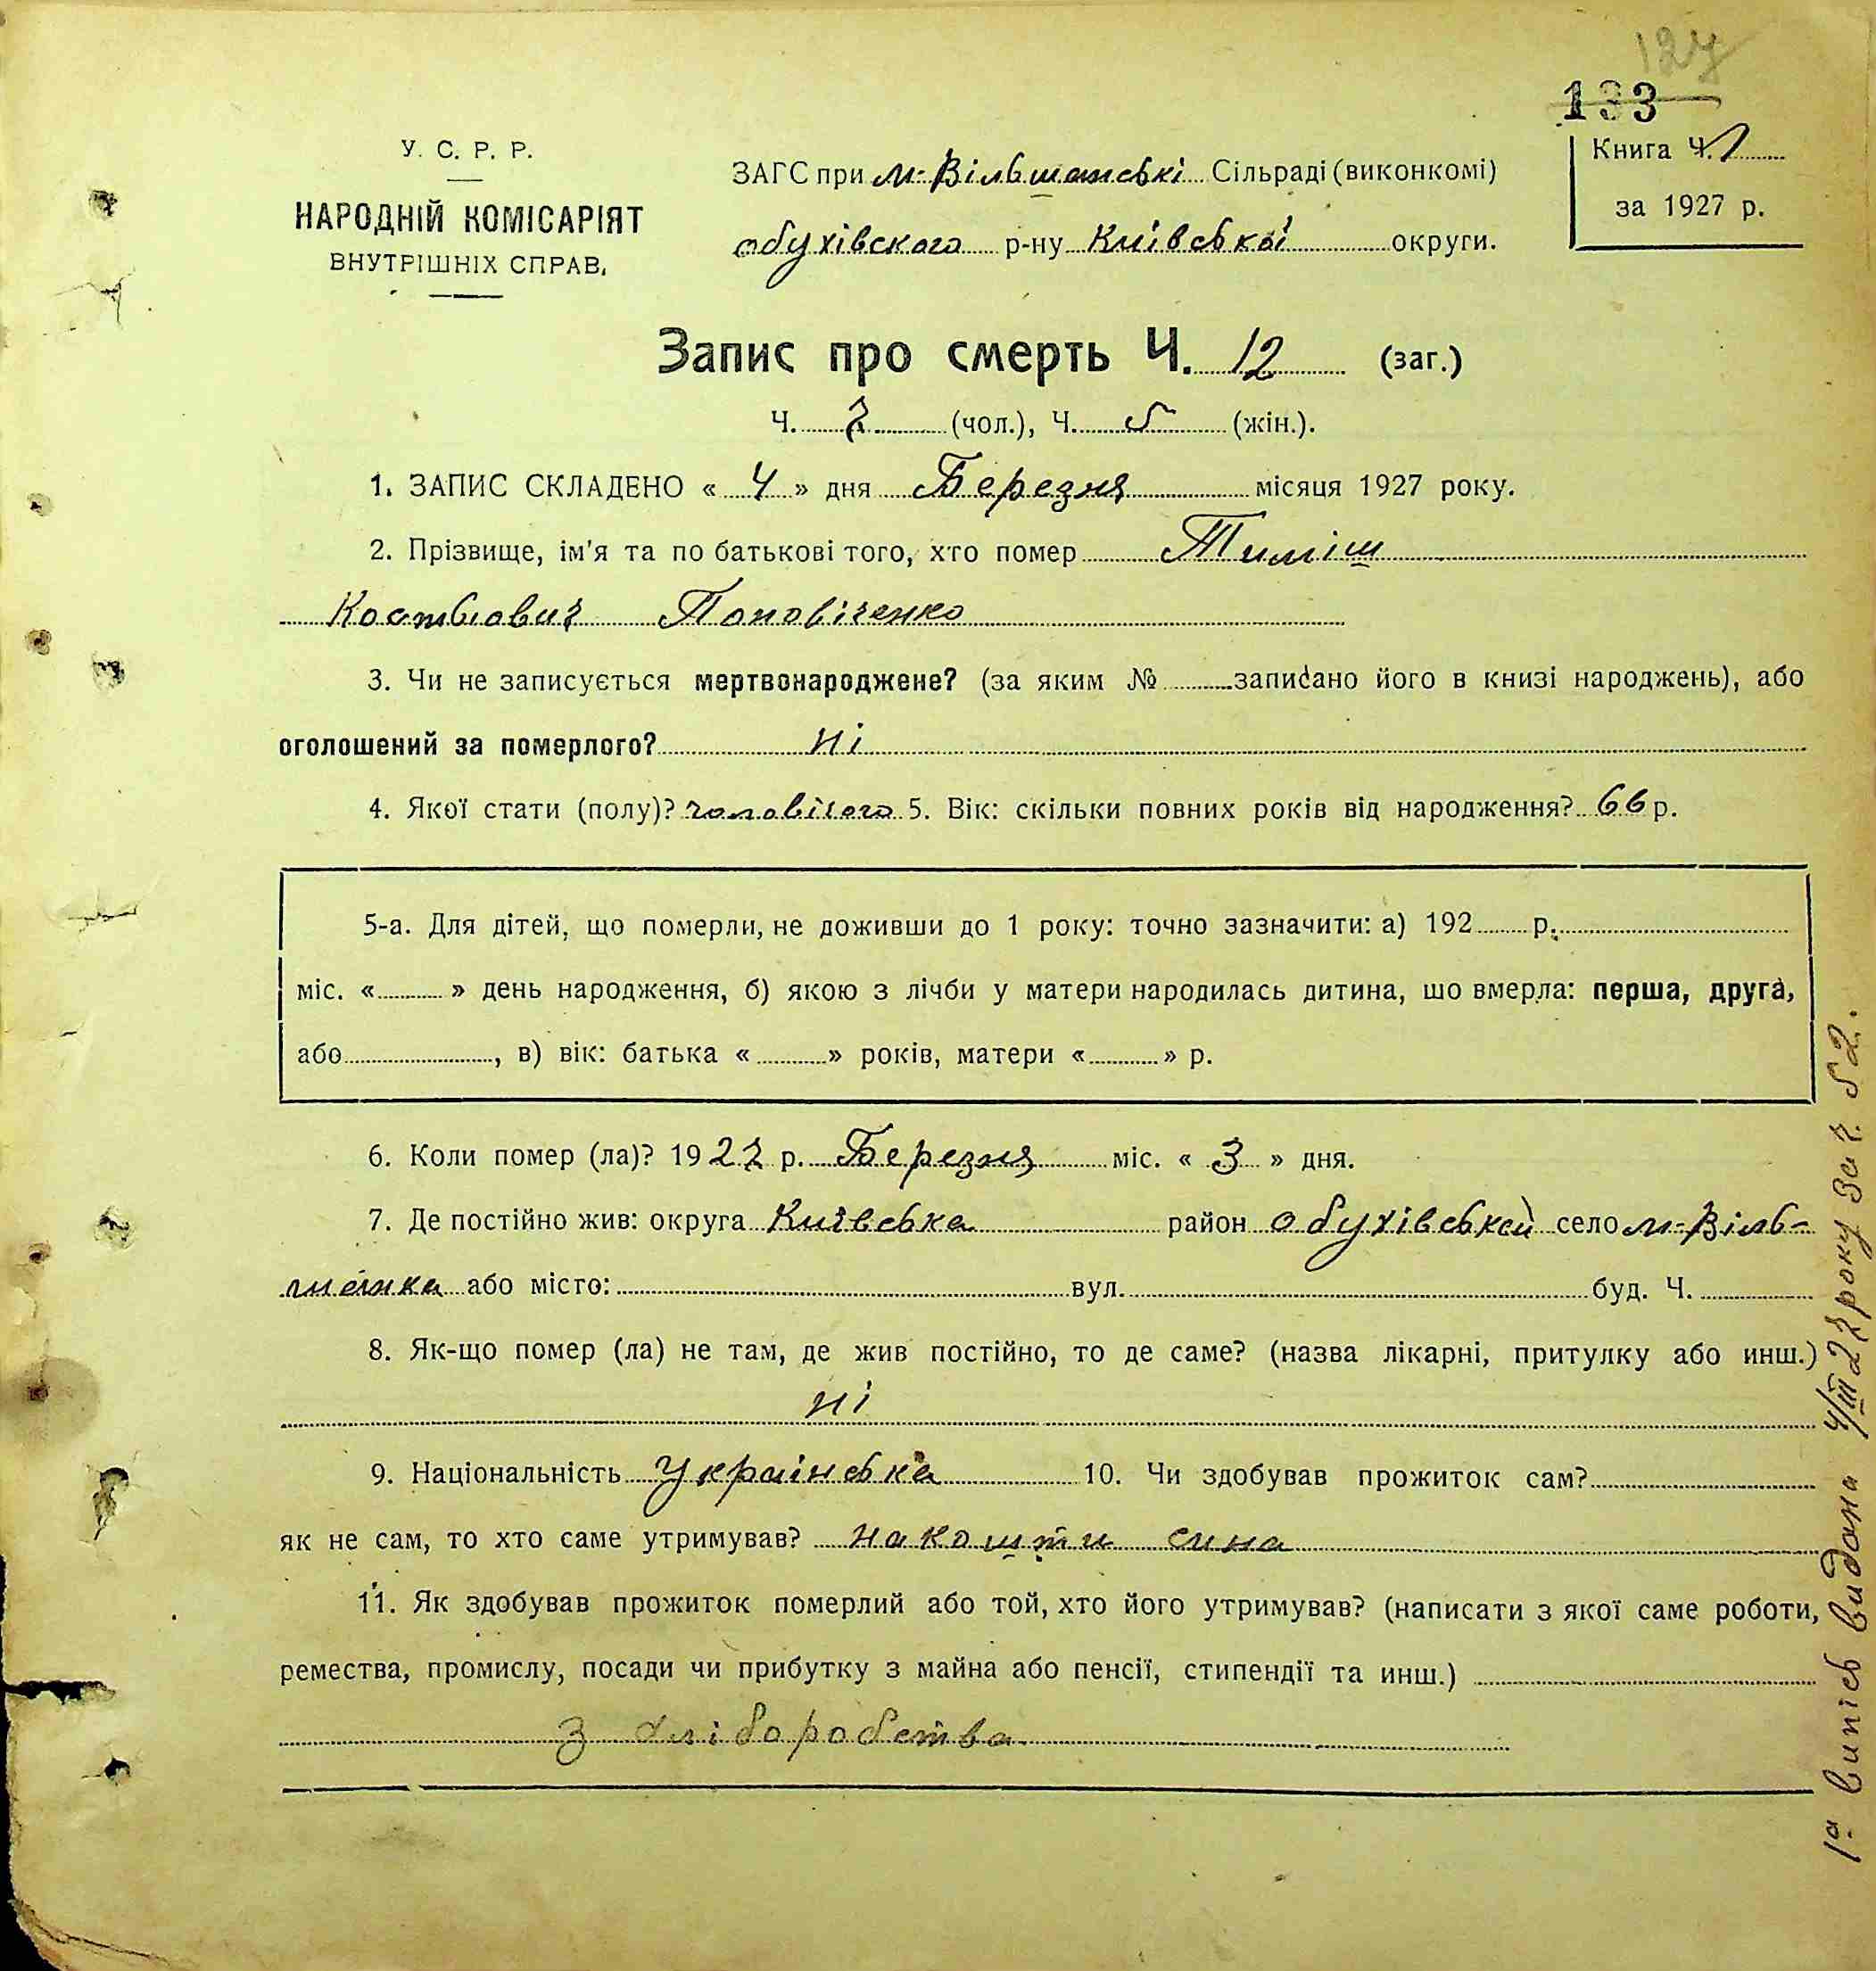 127
133
У. С. Р. Р.
НАРОДНІЙ КОМІСАРІЯТ
ВНУТРІШНІХ СПРАВ.
ЗАГС при м-Вільшанські Сільраді (виконкомі)
обухівского р-ну Київської округи.
Книга Ч. 1
за 1927 р.
Запис про смерть Ч. 12 (заг.)
Ч. 7 (чол.), Ч. 5 (жін.).
1. ЗАПИС СКЛАДЕНО « 4 » дня Березня місяця 1927 року.
2. Прізвище, ім'я та по батькові того, хто помер Тиміш
Костьович Поповіченко
3. Чи не записується мертвонароджене? (за яким № записано його в книзі народжень), або
оголошений за померлого? ні
4. Якої стати (полу)? чоловічого 5. Вік: скільки повних років від народження? 66 р.
5-а. Для дітей, що померли, не доживши до 1 року: точно зазначити: а) 192 р.
міс. « » день народження, б) якою з лічби у матери народилась дитина, шо вмерла: перша, друга,
або , в) вік: батька « » років, матери « » р.
6. Коли помер (ла)? 1927 р. Березня міс. « 3 » дня.
7. Де постійно жив: округа Київська район обухівськой село м-Віль-
шанка або місто: вул. буд. Ч.
8. Як-що помер (ла) не там, де жив постійно, то де саме? (назва лікарні, притулку або инш.)
ні
9. Національність українська 10. Чи здобував прожиток сам?
як не сам, то хто саме утримував? на кошти сина
11. Як здобував прожиток померлий або той, хто його утримував? (написати з якої саме роботи,
ремества, промислу, посади чи прибутку з майна або пенсії, стипендії та инш.)
З хліборобства
1а випісь видана 4/III 27 року за ч. 52.